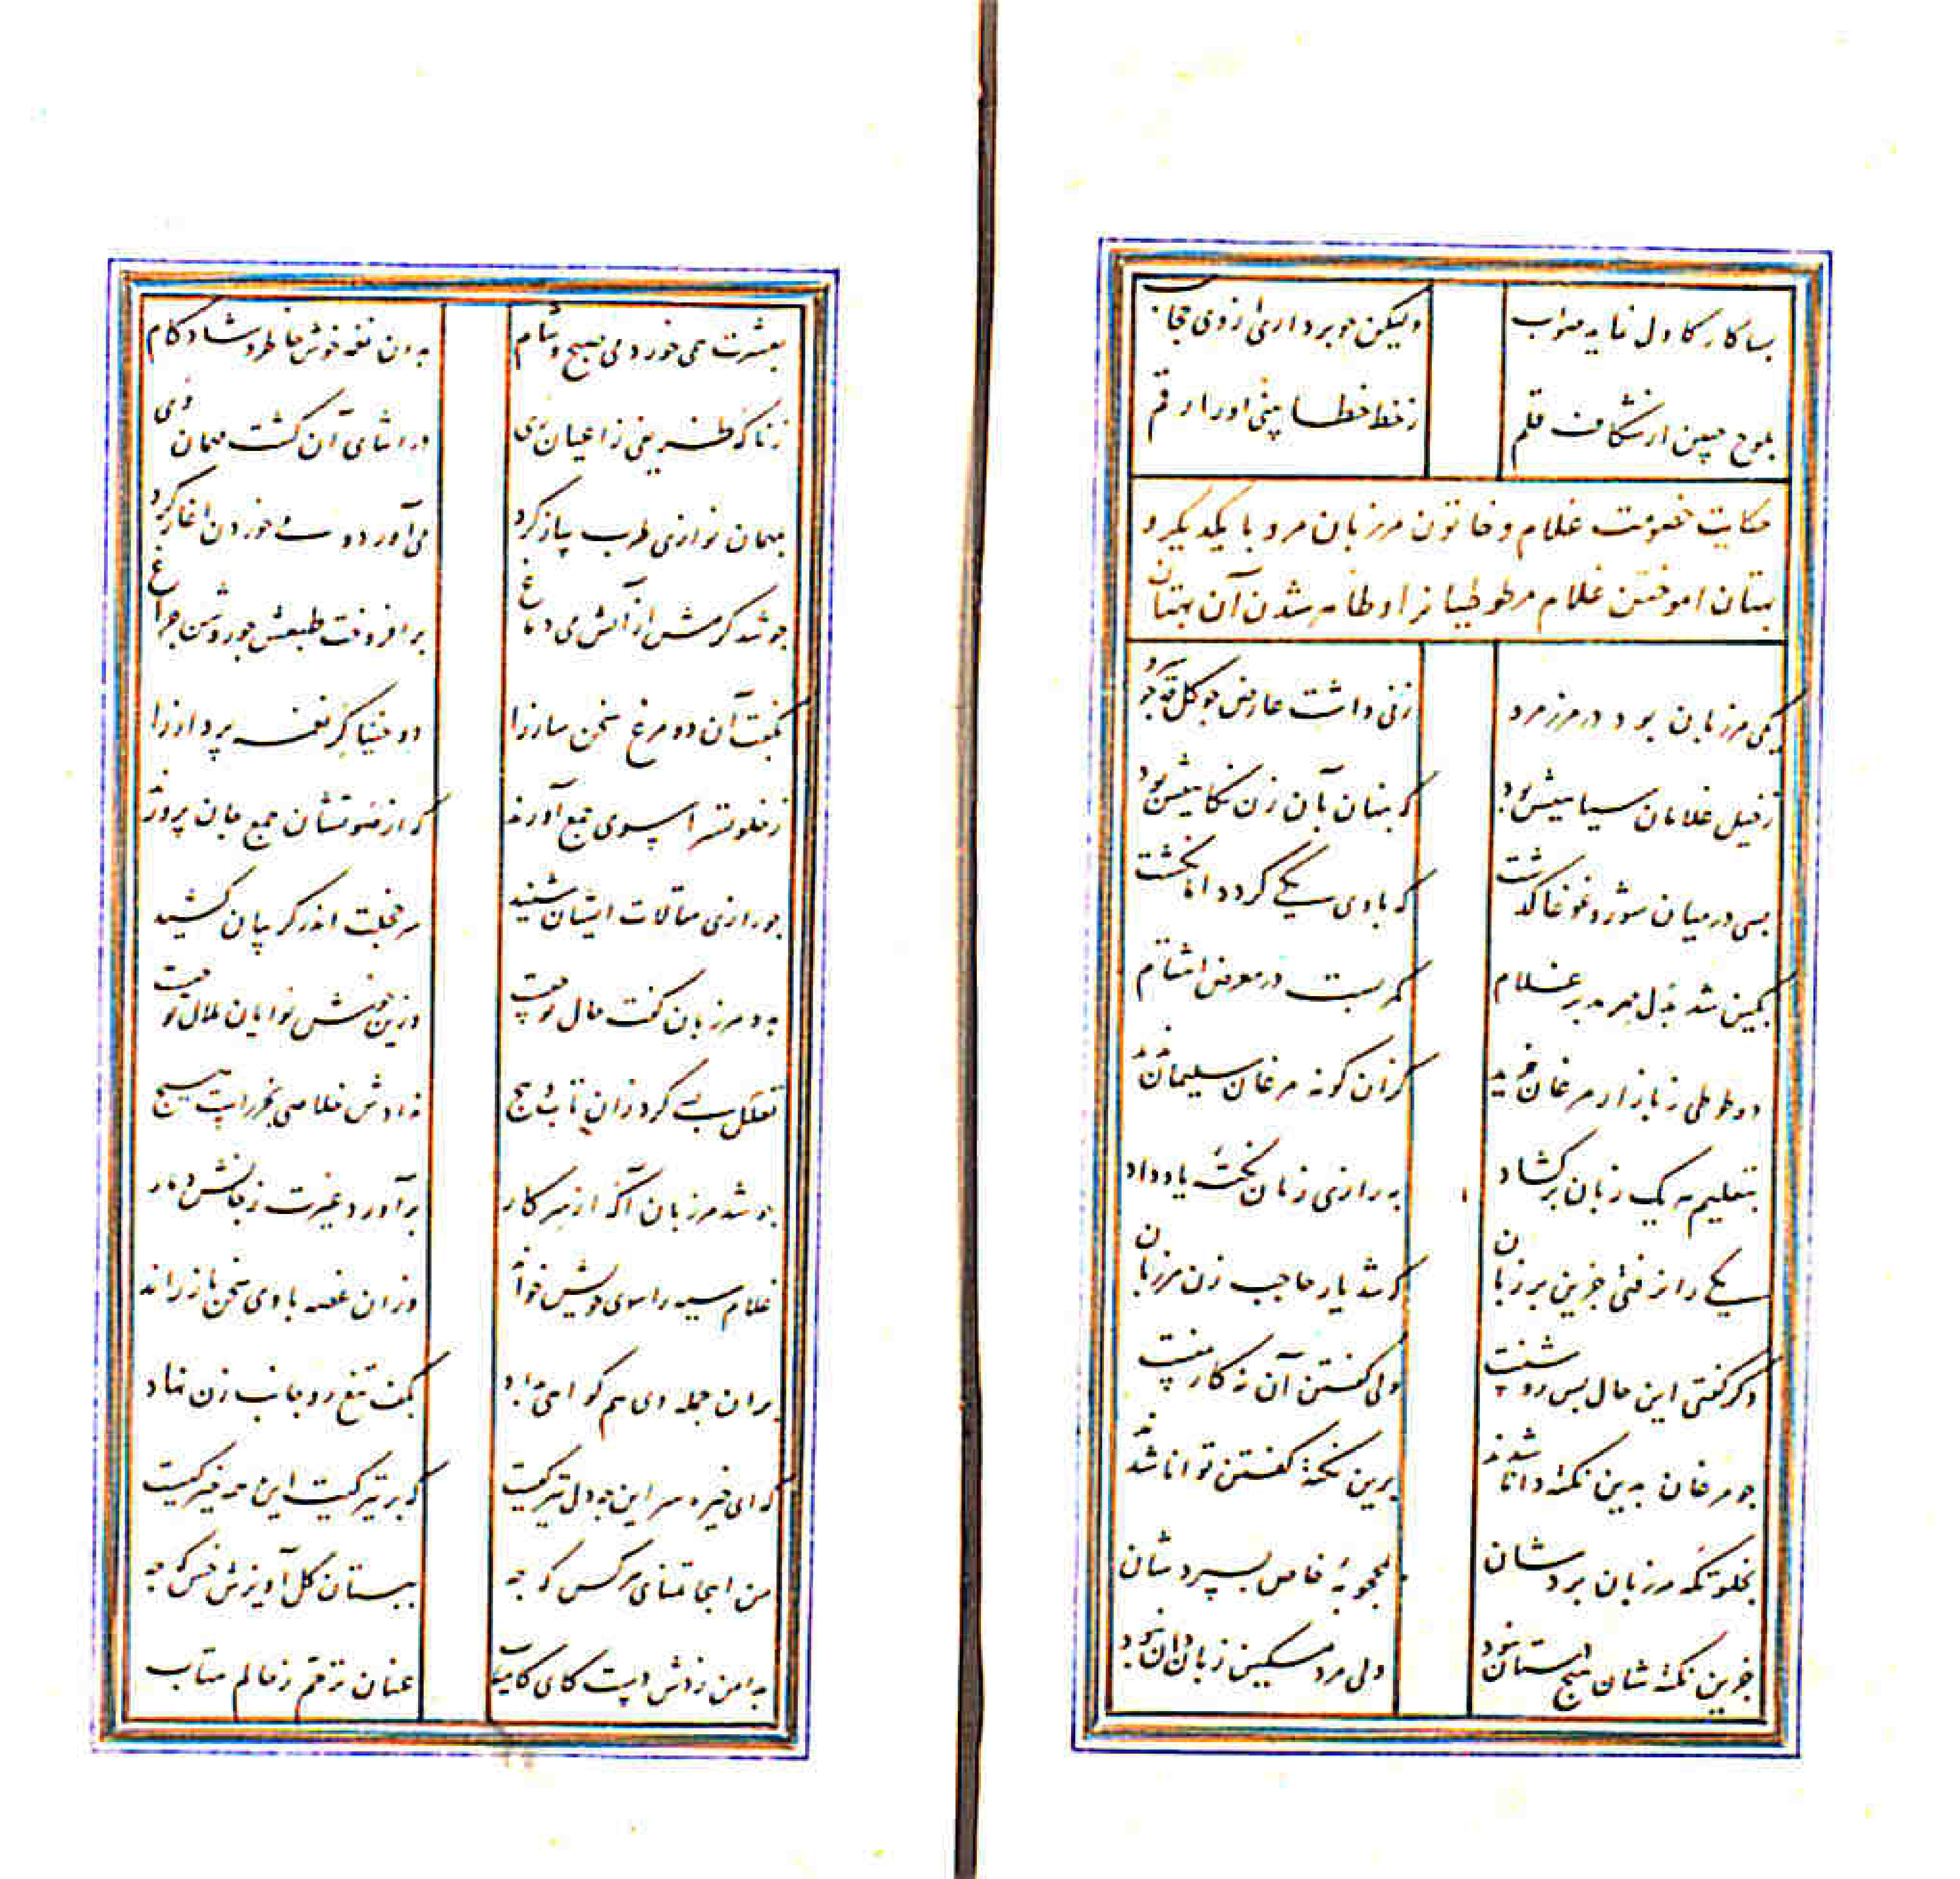 بسا کار کاول نماید صواب ولیکن چو برداری از وی حجاب
بلوح جبین از شکاف قلم ز خط خطا بینی او را رقم
حکایت خصومت غلام و خاتون مرزبان مرو با یکدیگر و
بهتان اموختن غلام مر طوطیانرا و ظاهر شدن آن بهتان
یکی مرزبان بود در مرز مرو زنی داشت عارض چو گل قد چو سرو
ز خیل غلامان سیاهیش بود که پنهان بآن زن نگاهیش بود
بسی در میان شور و غوغا گذشت که با وی یکی گردد اما نگشت
بکین شد بدل مهر مه بر غلام کمر بست در معرض انتقام
دو طوطی ز بازار مرغان خرید کزان گونه مرغان سلیمان ندید
بتعلیم هر یک زبان برگشاد به رازی زبان نکته یاد داد
یکی را نرفتی جزین بر زبان که شد یار حاجب زن مرزبان
دگر گفتی این حال بس روشنست ولی گفتن آن نه کار منست
چو مرغان بدین نکته دانا شدند برین نکته گفتن توانا شدند
بخلوتگه مرزبان بردشان بمحجوبه خاص بسپردشان
جزین نکته شان هیچ دستان نبود ولی مرد مسکین زبان دان نبود
بعشرت همی خورد می صبح و شام بدان نغمه خوش خاطر و شادکام
ز ناگه ظریفی ز اعیان ری در اثنای آن گشت مهمان وی
بمهمان نوازی طرب ساز کرد می آورد و می خوردن اغاز کرد
چو شد گرمش از آتش می دماغ برافروخت طبعش چو روشن چراغ
بگفت آن دو مرغ سخن ساز را دو خنیاگر نغمه پرداز را
ز خلوتسرا سوی جمع آورند که از صوتشان جمع جان پرورند
چو رازی مقالات ایشان شنید سر خجلت اندر گریبان کشید
بدو مرزبان گفت حال تو چیست وزین خوش نوایان ملال تو چیست
تعلل بسی کرد زان تاب و پیچ ندادش خلاصی بجز راست هیچ
چو شد مرزبان آگه از سر کار برآورد غیرت ز جانش دمار
غلام سیه را سوی خویش خواند وزان غصه با وی سخن باز راند
بران جمله وی هم گواهی بداد بکف تیغ رو جانب زن نهاد
که ای خیره سر این چه دل تیرگیست که بر تیرگیت این همه خیرگیست
من اینجا تمنای هر کس که چه ببستان گل آویزش خس که چه
بدامن زدش دست کای کامیاب عنان ترحم ز حالم متاب